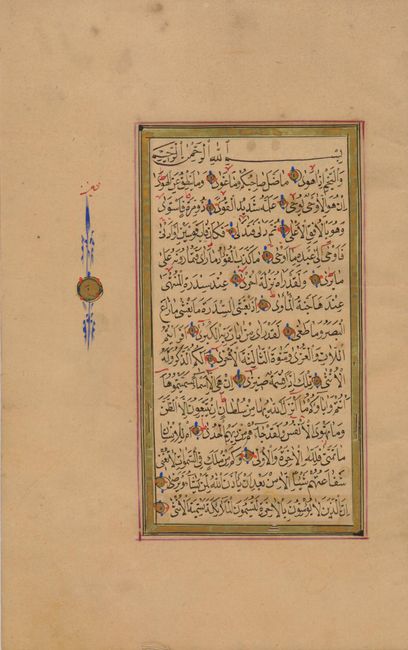 بسم الله الرحمن الرحيم
والنجم اذا هوى ما ضل صاحبكم وما غوى وما ينطق عن الهوى
ان هو الا وحي يوحى علمه شديد القوى ذو مرة فاستوى
وهو بالافق الاعلى ثم دنى فتدلى فكان قاب قوسين او ادنى
فاوحى الى عبده ما اوحى ما كذب الفؤاد ما راى افتمارونه على
ما يرى ولقد راه نزلة اخرى عند سدرة المنتهى
عندها جنة الماوى اذ يغشى السدرة ما يغشى ما زاغ
البصر وما طغى لقد راى من ايات ربه الكبرى افرايتم
اللات والعزى ومنوة الثالثة الاخرى الكم الذكر وله
الانثى تلك اذا قسمة ضيزى ان هي الا اسماء سميتموها
انتم واباؤكم ما انزل الله بها من سلطان ان يتبعون الا الظن
وما تهوى الانفس ولقد جاءهم من ربهم الهدى ام للانسان
ما تمنى فلله الاخرة والاولى وكم من ملك في السموات لا تغني
شفاعتهم شيئا الا من بعد ان ياذن الله لمن يشاء ويرضى
ان الذين لا يؤمنون بالاخرة ليسمون الملائكة تسمية الانثى